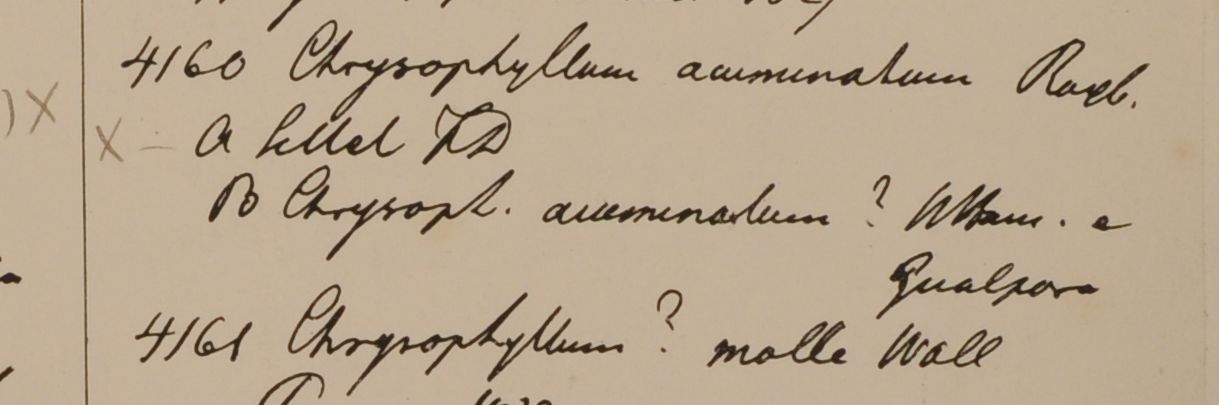 4160 Chrysophyllum acuminatum Roxb.
X – a Sillet FD
B Chrysoph. acuminatum ? Ham. e
Gualpara
4161 Chrysophyllum ? molle Wall